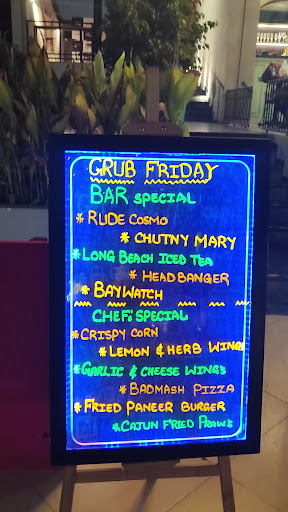 GRUB FRIDAY
BAR SPECIAL
* RUDE COSMO
* CHUTNY MARY
* LONG BEACH ICED TEA
* HEADBANGER
* BAYWATCH
CHEF'S SPECIAL
* CRISPY CORN
* LEMON & HERB WING
* GARLIC & CHEESE WING'S
* BADMASH PIZZA
* FRIED PANEER BURGER
* CAJUN FRIED PRAWS